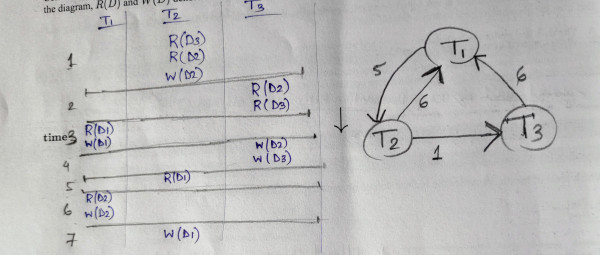 the diagram, R(D) and W(D)
T1 T2 T3
1 R(D3)
R(D2)
W(D2)
2 R(D2)
R(D3)
time 3 R(D1)
W(D1)
4 W(D2)
W(D3)
5 R(D1)
6 R(D2)
W(D2)
7 W(D1)
T1
5 6 6
T2 T3
1